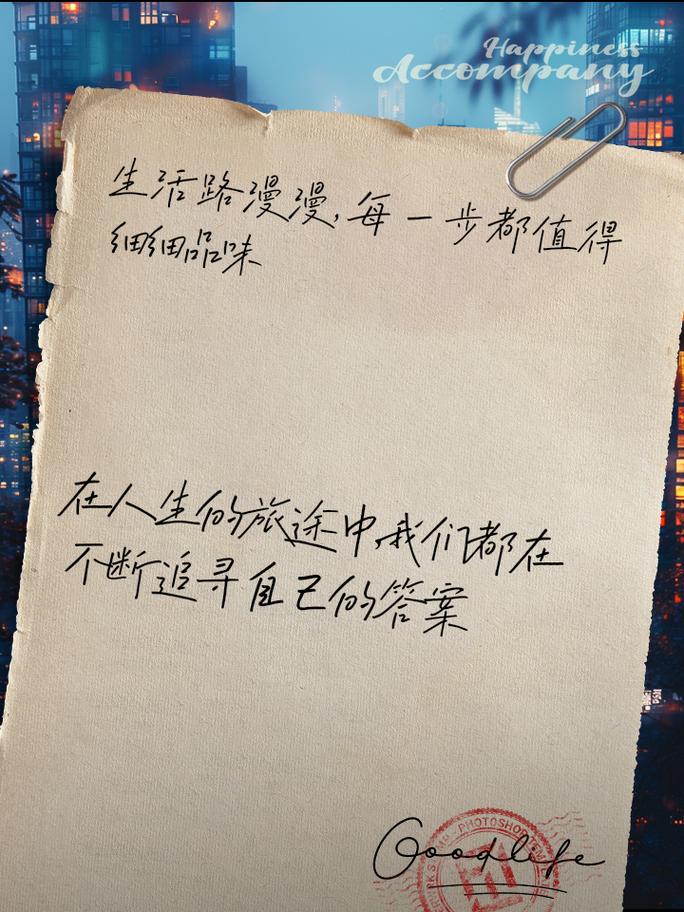 Happiness
Accompany
生活路漫漫,每一步都值得
细细品味
在人生的旅途中,我们都在
不断追寻自己的答案
PHOTOSHOP
Goodlife